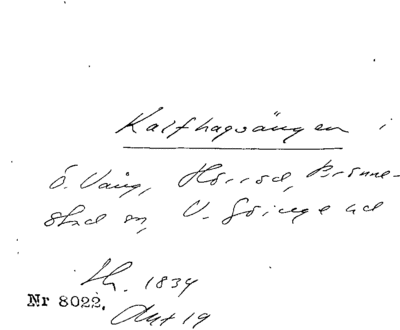 Kalfhagsängen i
Ö. Vång, Hörröd, Brönne-
stad sn, V. Göinge hd
Lh. 1834
Nr 8022.
Akt 19